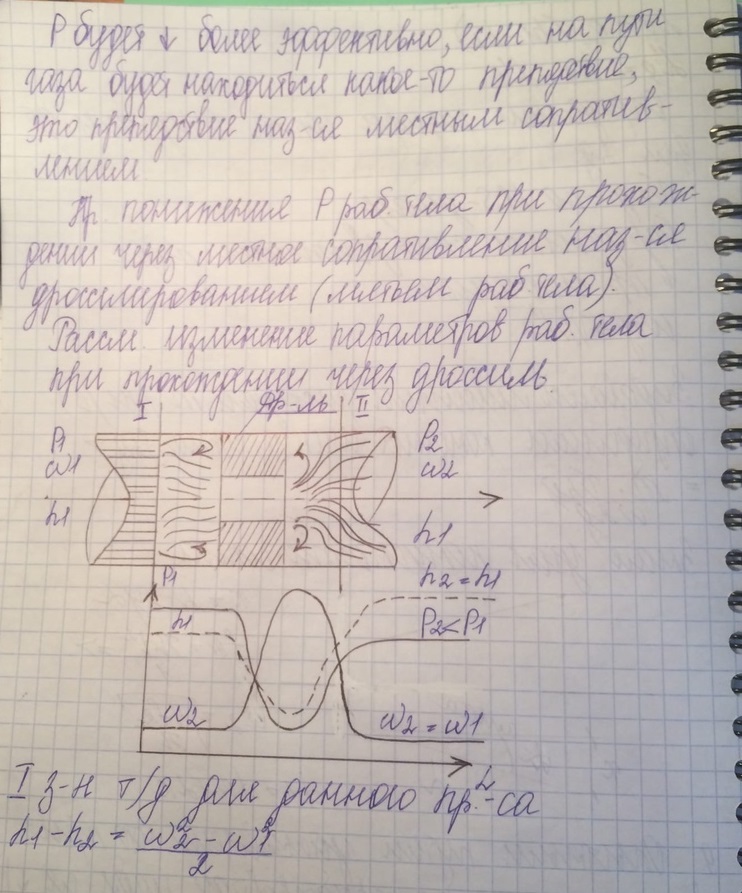 Р будет ↓ более эффективно, если на пути
газа будет находиться какое-то препедствие,
это препедствие наз-ся местным сопратив-
лением
Пр. понижения Р раб. тела при прохож-
дении через местное сопративление наз-ся
дросселированием (мятьем раб тела).
Рассм. изменение параметров раб. тела
при прохождении через дроссиль.
I Др-ль II
P1 P2
ω1 ω2
h1 h1
P1 h2 = h1
h1 P2 < P1
ω2 ω2 = ω1
L
I з-н т/д для данного пр.-са
h1 - h2 = (ω2² - ω1²)/2